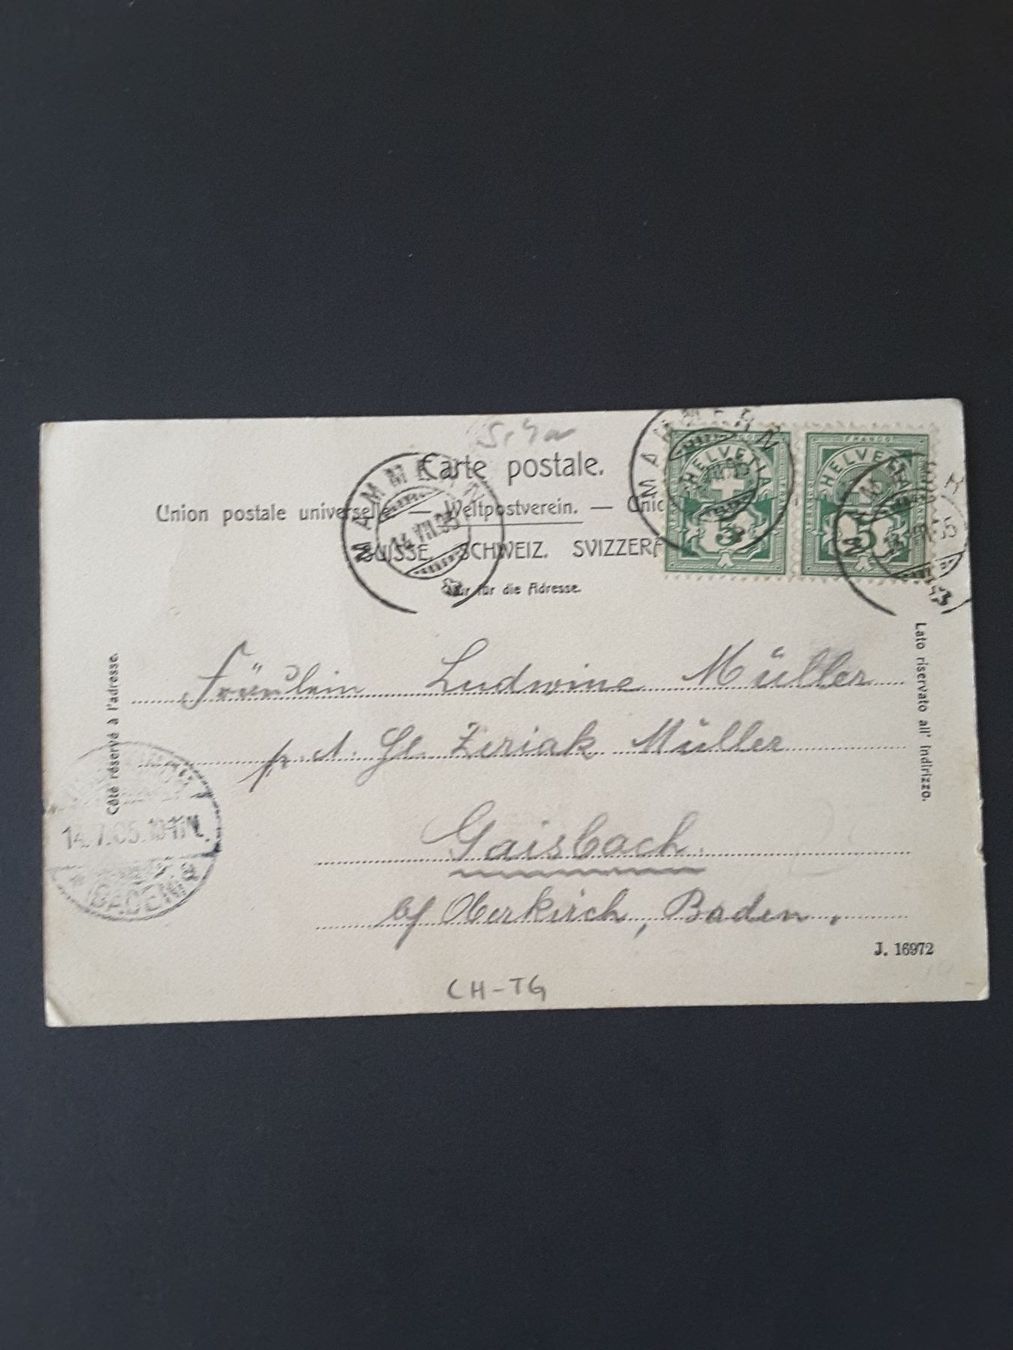 Carte postale.
Union postale universelle. — Weltpostverein. —
SUISSE. SCHWEIZ. SVIZZERA
Nur für die Adresse.
MAMMERN
14.VII.05
MAMMERN
HELVETIA
5
FRANCO
HELVETIA
5
MAMMERN
Côté réservé à l'adresse.
Lato riservato all' indirizzo.
Fräulein Ludwine Müller
p. A. Hl. Ziriak Müller
Gaisbach.
b/ Oberkirch, Baden.
14.7.05.10-11N.
BADEN
J. 16972
CH-TG